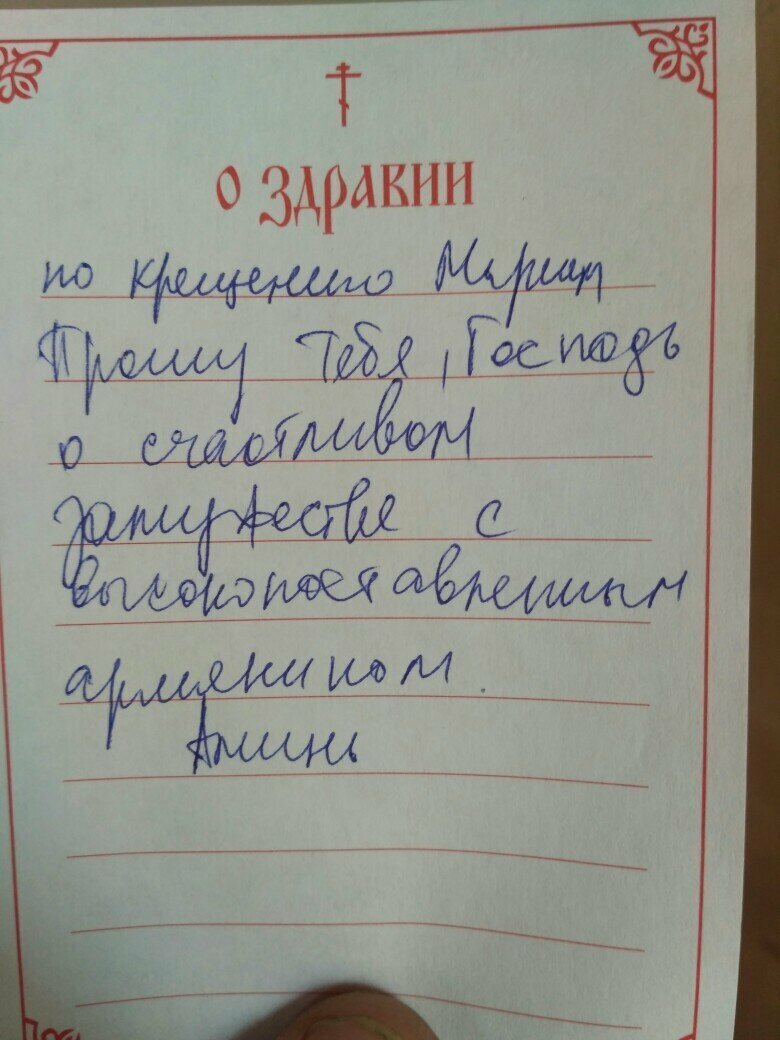 О ЗДРАВИИ
по крещению Мариам
Прошу Тебя, Господь
о счастливом
замужестве с
высокопоставленным
армянином.
Аминь